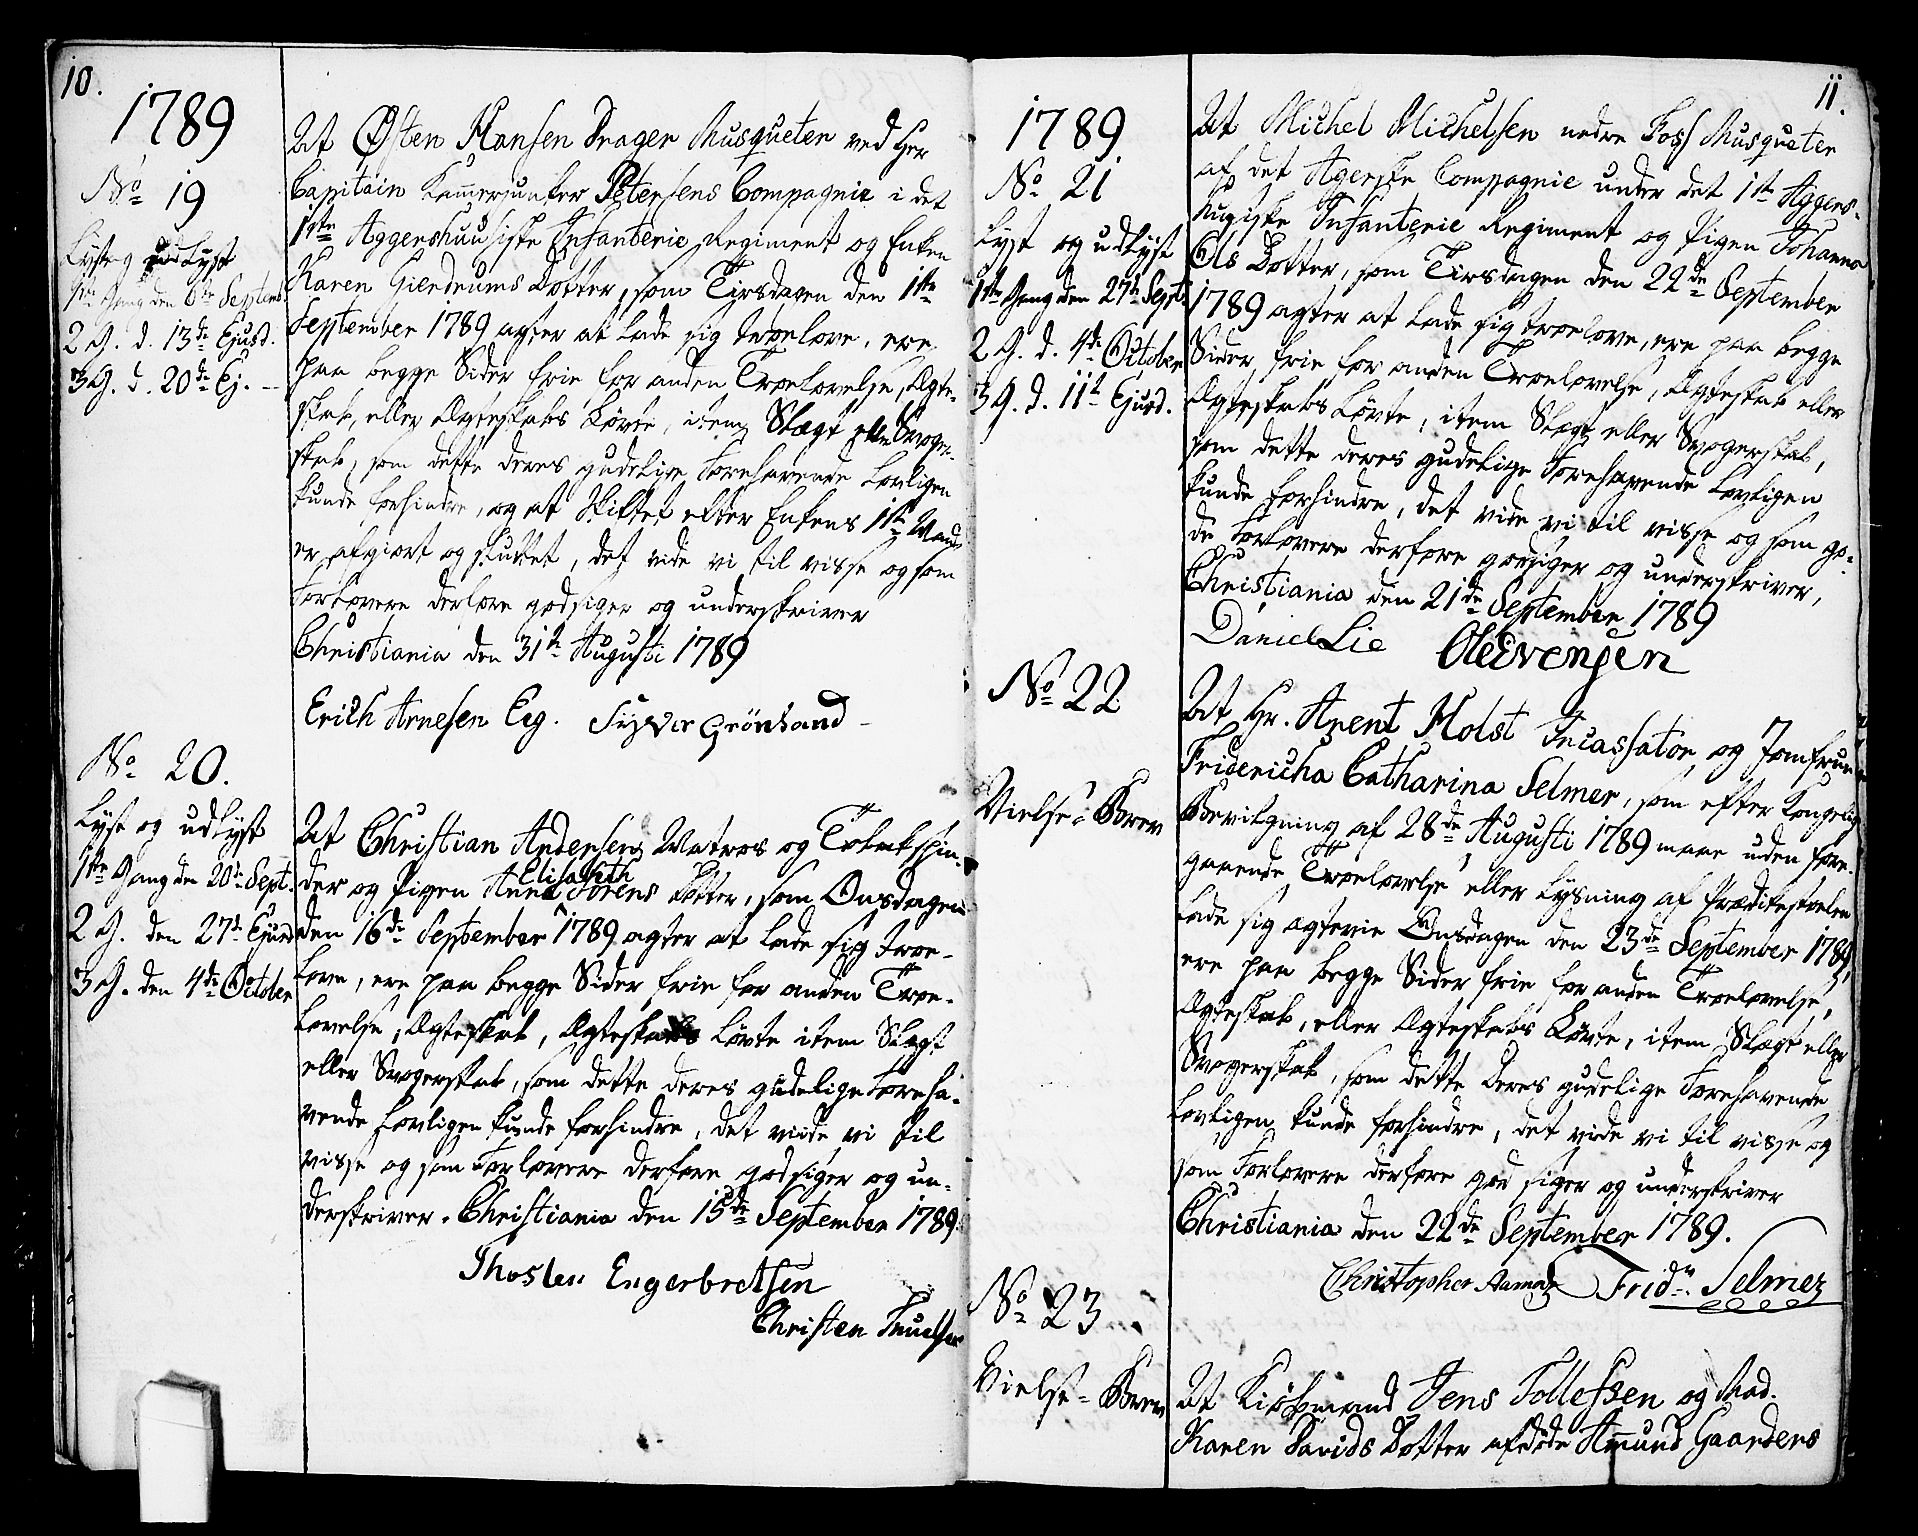 10.
1789
No 19
Lyst og udLyst
1ste Gang den 6te Septemb.
2 G. d. 13de Ejusd.
3 G. d. 20de Ej. --
At Østen Hansen Drager Musqueter ved Her
Capitain Kammerjunker Petersens Compagnie i det
1ste Aggershuusiske Infanterie Regiment og Enken
Karen Gierdrums Dotter, som Tirsdagen den 1ste
September 1789 agter at lade sig troelove, ere
paa begge Sider frie for anden Troelovelse, Ægte-
skab, eller Ægteskabs Løvte, item Slægt eller Svoger-
skab, som dette deres gudelige Forehavende Lovligen
kunde forhindre, og at Skiftet efter Enkens 1ste Mand
er afgiort og sluttet, det vide vi til visse og som
Forlovere derfore godsiger og underskriver
Christiania den 31te Augusti 1789
Erich Arnesen Eeg. Syver Grønland
No 20.
Lyst og udLyst
1ste Gang den 20de Sept.
2 G. den 27de Ejusd
3 G. den 4de October
At Christian Andersen Matros og Tobakspin-
der og Pigen Anne Elisabeth Sørens Dotter, som Onsdagen
den 16de September 1789 agter at lade sig troe-
love, ere paa begge Sider frie for anden Troe-
lovelse, Ægteskab, Ægteskabs Løvte item Slægt
eller Svogerskab, som dette deres gudelige Foreha-
vende Lovligen kunde forhindre, det viide vi til
visse og som Forlovere derfore godsiger og un-
derskriver. Christiania den 15de September 1789.
Thosten Engerbretsen
Christen Knudsen
11.
1789
No 21
Lyst og udLyst
1ste Gang den 27de Sept.
2 G. d. 4de October
3 G. d. 11te Ejusd.
At Michel Michelsen nedre Foss Musqueter
af det Agerske Compagnie under det 1ste Aggers-
huusiske Infanterie Regiment og Pigen Johanna
Ols Dotter, som Tirsdagen den 22de September
1789 agter at lade sig troelove, ere paa begge
Sider frie for anden Troelovelse, Ægteskab eller
Ægteskabs Løvte, item Slægt eller Svogerskab,
som dette deres gudelige Forehavende Lovligen
kunde forhindre, det vide vi til visse og som go-
de Forlovere derfore godsiger og underskriver,
Christiania den 21de September 1789
Daniel Lie Ole Evensen
No 22
Vielse-Brev
At Hr. Arent Holst Incassator og Jomfrue
Fridericha Catharina Selmer, som efter Kongelig
Bevilgning af 28de Augusti 1789 maae uden fore-
gaaende Troelovelse eller Lysning af Prædikestolen
lade sig ægtevie Onsdagen den 23de September 1789,
ere paa begge Sider frie for anden Troelovelse,
Ægteskab, eller Ægteskabs Løvte, item Slægt eller
Svogerskab, som dette Deres gudelige Forehavende
Lovligen kunde forhindre, det vide vi til visse og
som Forlovere derfore god siger og underskriver
Christiania den 22de September 1789.
Christopher Fridr. Selmer
No 23
Vielse-Brev
At Kiøbmand Jens Tollefsen og Mad.
Karen Davids Dotter afdøde Amund Gaarders